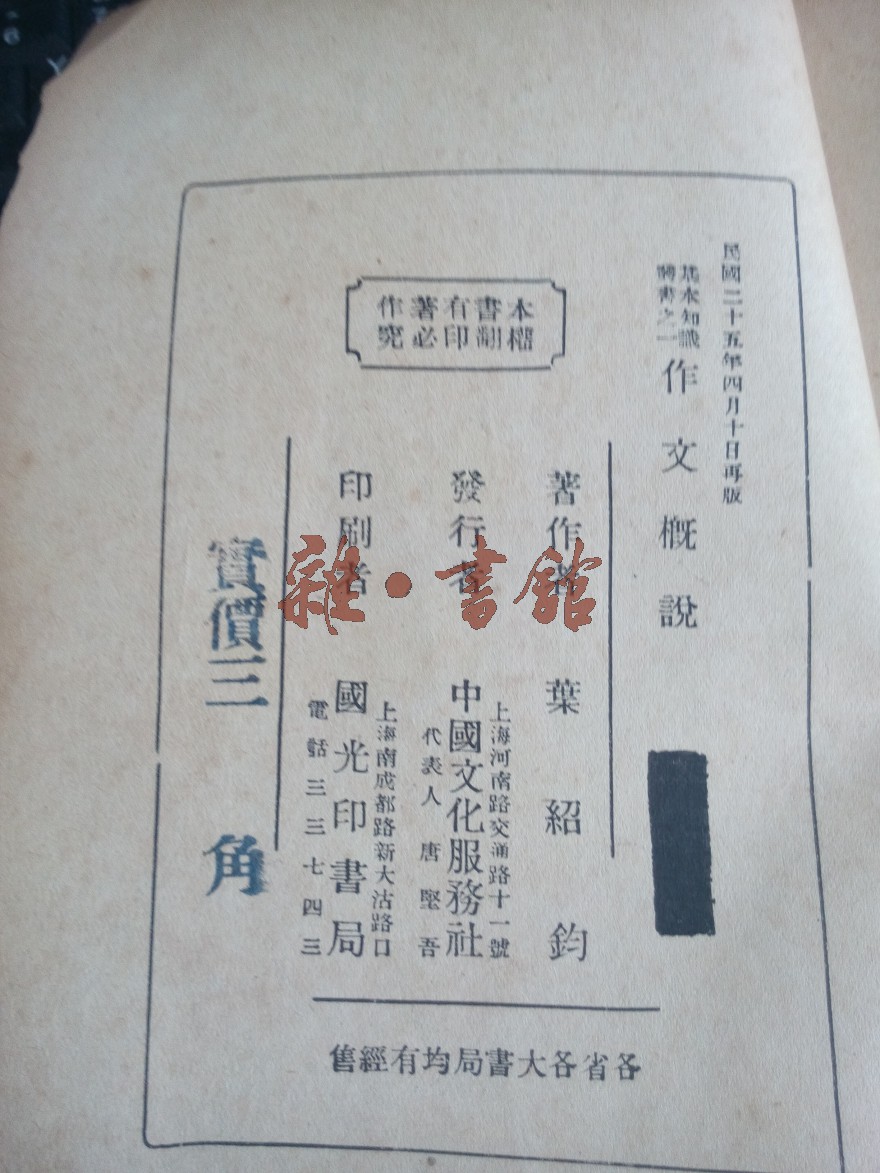 民國二十五年四月十日再版
基本知識
叢書之一
作文概說
本書有著作
權翻印必究
著作者 葉紹鈞
發行者 中國文化服務社
上海河南路交通路十一號
代表人 唐堅吾
印刷者 國光印書局
上海南成都路新大沽路口
電話三三七四三
實價三角
各省各大書局均有經售
雜·書館